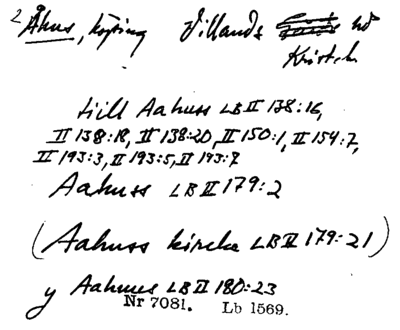 2 Åhus, köping Villands hd
Krist. l.
till Aahuss LB II 138:16,
II 138:18, II 138:20, II 150:1, II 154:7,
II 193:3, II 193:5, II 193:7
Aahuss LB II 179:2
(Aahuss kircke LB II 179:21)
y Aahuus LB II 180:23
Nr 7081. Lb 1569.